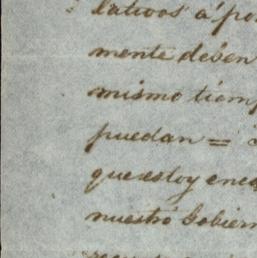 lativos á po
mente deben
mismo tiemp
puedan =
que estoy enca
nuestro Gobiern